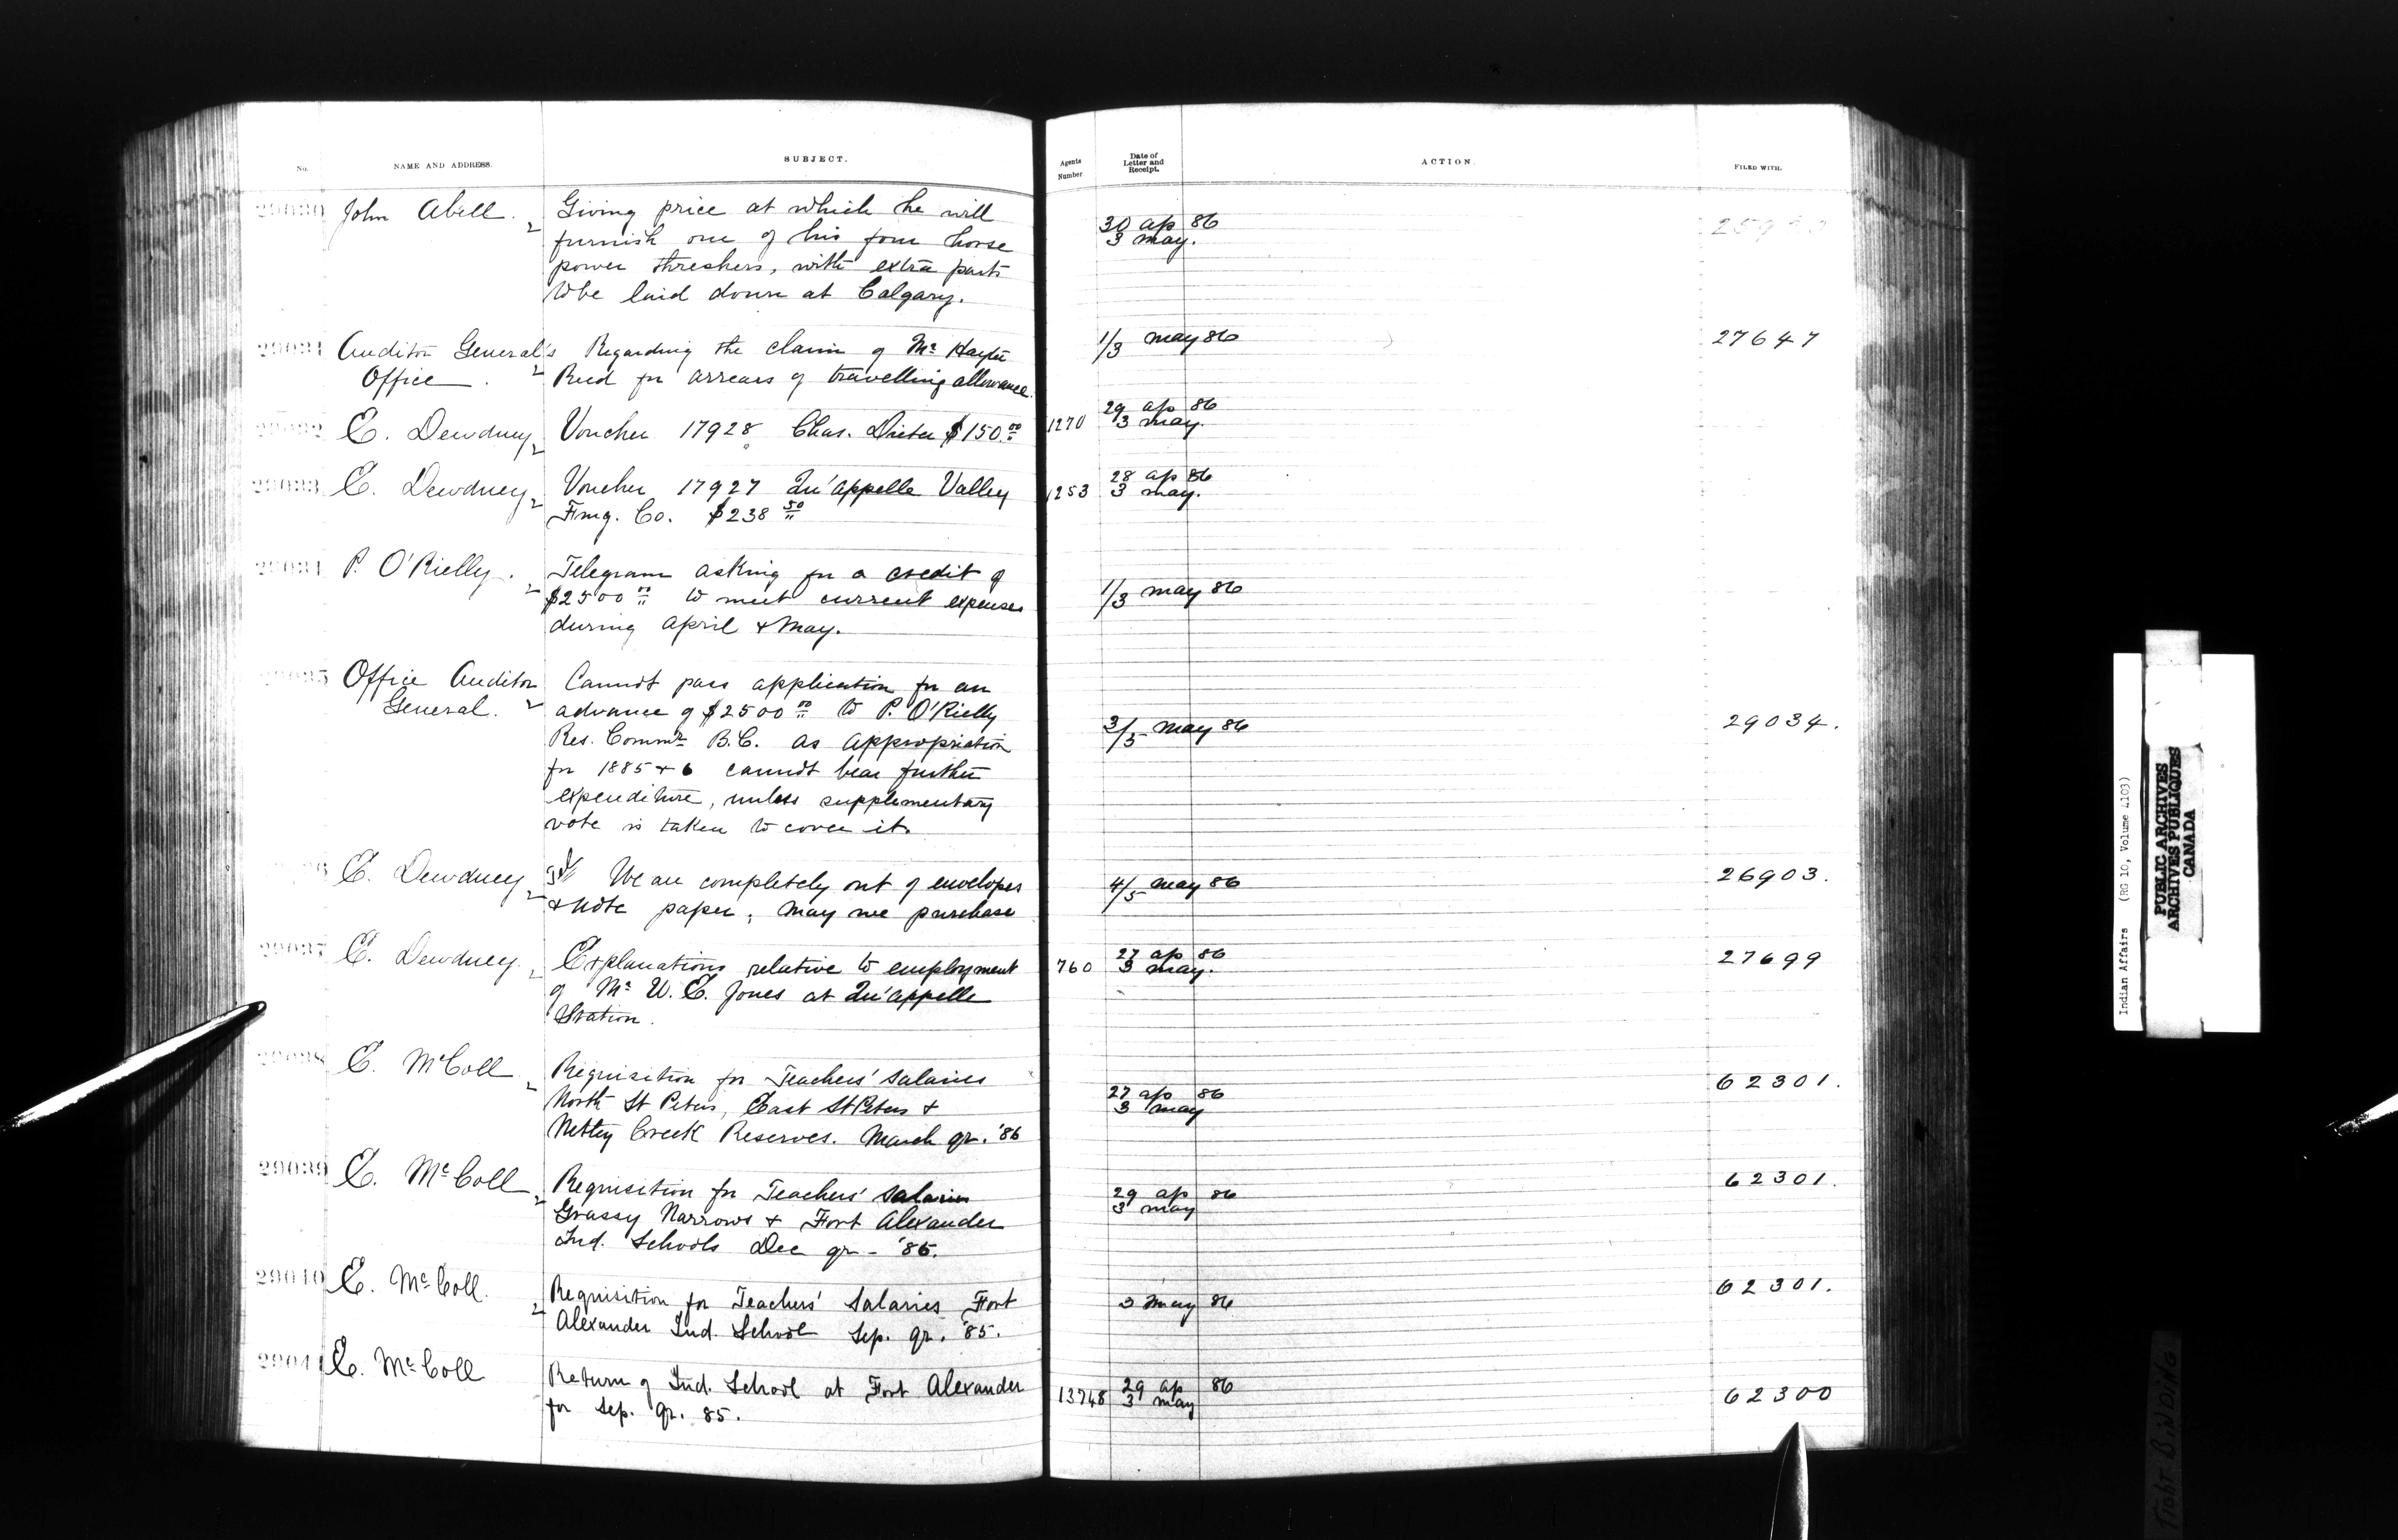 No.
NAME AND ADDRESS.
SUBJECT.
Agents Number
Date of Letter and Receipt.
ACTION.
FILED WITH.
29030 John Abell. Giving price at which he will
furnish one of his four horse
power threshers, with extra parts
to be laid down at Calgary.
30 ap 86
3 may.
29031 Auditor General's Regarding the claim of Mr Hayter
Office. Reed for arrears of travelling allowance.
1/3 may 86
27647
29032 E. Dewdney Voucher 17928 Chas. $150.00
1270
29 ap 86
3 may.
29033 E. Dewdney Voucher 17927 Qu'appelle Valley
Fmg. Co. $238.50
1253
28 ap 86
3 may.
29034 P. O'Rielly. Telegram asking for a credit of
$2500.00 to meet current expenses
during April & May.
1/3 may 86
29035 Office Auditor Cannot pass application for an
General. advance of $2500.00 to P. O'Rielly
Res. Commr B.C. as appropriation
for 1885 & 6 cannot bear further
expenditure, unless supplementary
vote is taken to cover it.
3/5 may 86
29034.
E. Dewdney We are completely out of envelopes
& note paper, may we purchase
4/5 may 86
26903.
29037 E. Dewdney. Explanations relative to employment
of Mr W. E. Jones at Qu'appelle
Station.
760
27 ap 86
3 may.
27699
29038 E. McColl Requisition for Teachers' Salaries
North St Peters, East St Peters &
Netley Creek Reserves. March qr. '86
27 ap 86
3 may
62301.
29039 E. McColl Requisition for Teachers' Salaries
Grassy Narrows & Fort Alexander
Ind. Schools Dec qr - '85.
29 ap 86
3 may
62301.
29040 E. McColl. Requisition for Teachers' Salaries Fort
Alexander Ind. School Sep. qr. '85.
3 may 86
62301.
29041 E. McColl Return of Ind. School at Fort Alexander
for Sep. qr. 85.
13748
29 ap 86
3 may
62300
Indian Affairs (RG 10, Volume 4103)
PUBLIC ARCHIVES
ARCHIVES PUBLIQUES
CANADA
TIGHT BINDING